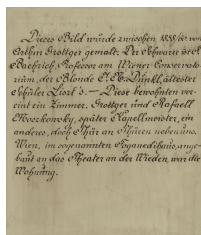 Dieses Bild wurde zwischen 1858/60 von
Arthur Grottger gemalt. Der Schwarze ist
Bachrich, Professor am Wiener Conservato-
rium, der Blonde Dunkl, ältester
Schüler Liszt's. — Diese bewohnten ver-
eint ein Zimmer, Grottger und Rafaell
Moszkowsky, später Kapellmeister, ein
anderes, doch Thür an Thüren neben uns.
Wien, im sogenannten ange-
baut an das Theater an der Wieden, war die
Wohnung.